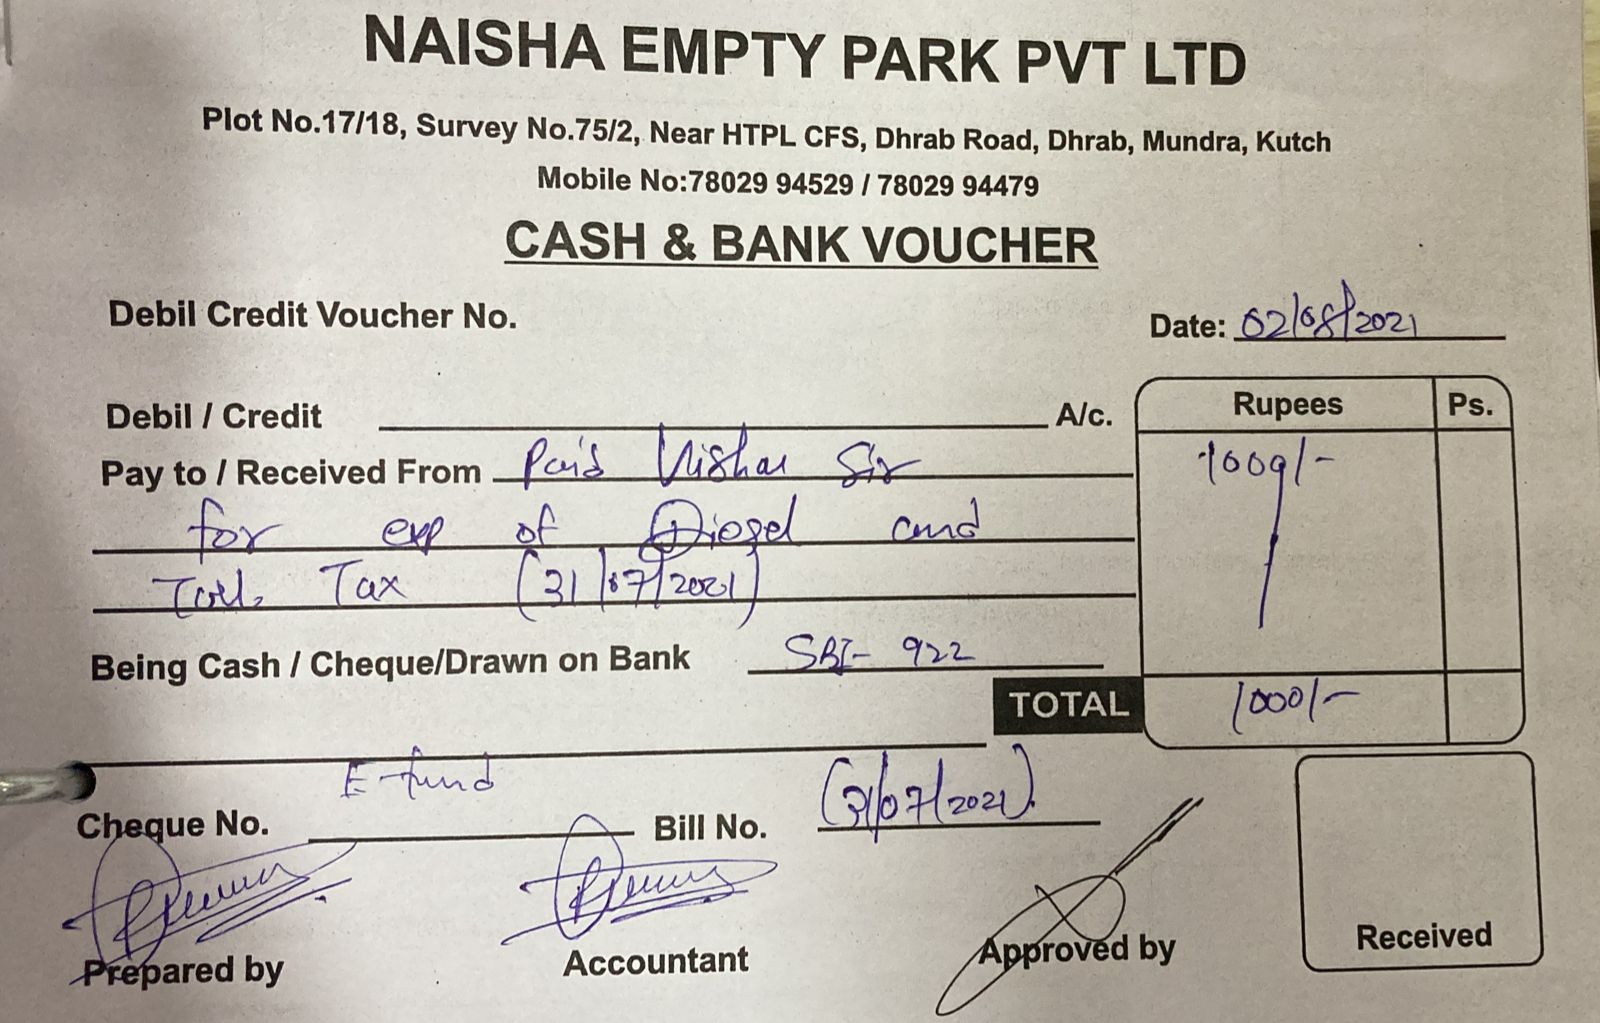 NAISHA EMPTY PARK PVT LTD
Plot No.17/18, Survey No.75/2, Near HTPL CFS, Dhrab Road, Dhrab, Mundra, Kutch
Mobile No:78029 94529 / 78029 94479
CASH & BANK VOUCHER
Debil Credit Voucher No.
Date: 02/08/2021
Debil / Credit A/c.
Rupees Ps.
Pay to / Received From Paid Sir
1000/-
for exp of Diesel and
Tax (31/07/2021)
Being Cash / Cheque/Drawn on Bank SBI- 922
TOTAL 1000/-
E-fund
Cheque No. Bill No. (31/07/2021).
Prepared by Accountant Approved by Received